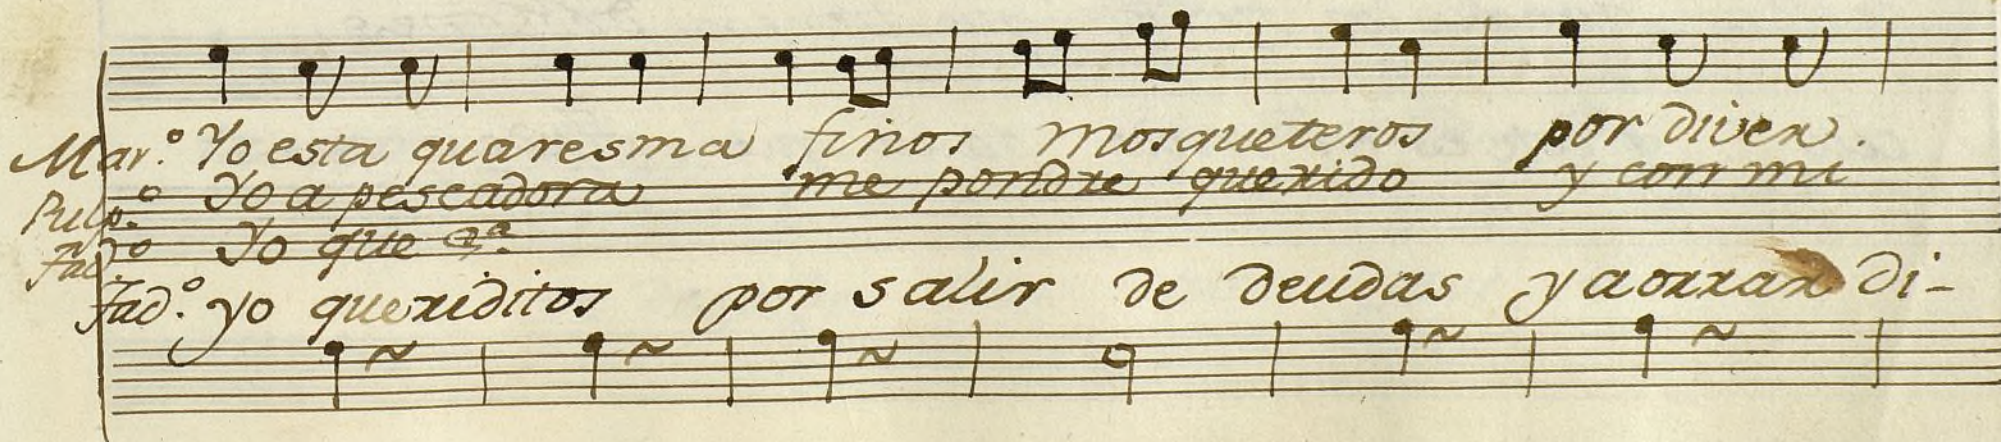 Mar.º Yo esta quaresma finos mosqueteros por diver.
Pulp.º Yo a pescadora me pondre querido y con mi
Fad.º Yo que &ª
Fad.º yo queriditos por salir de deudas y aorrar di-